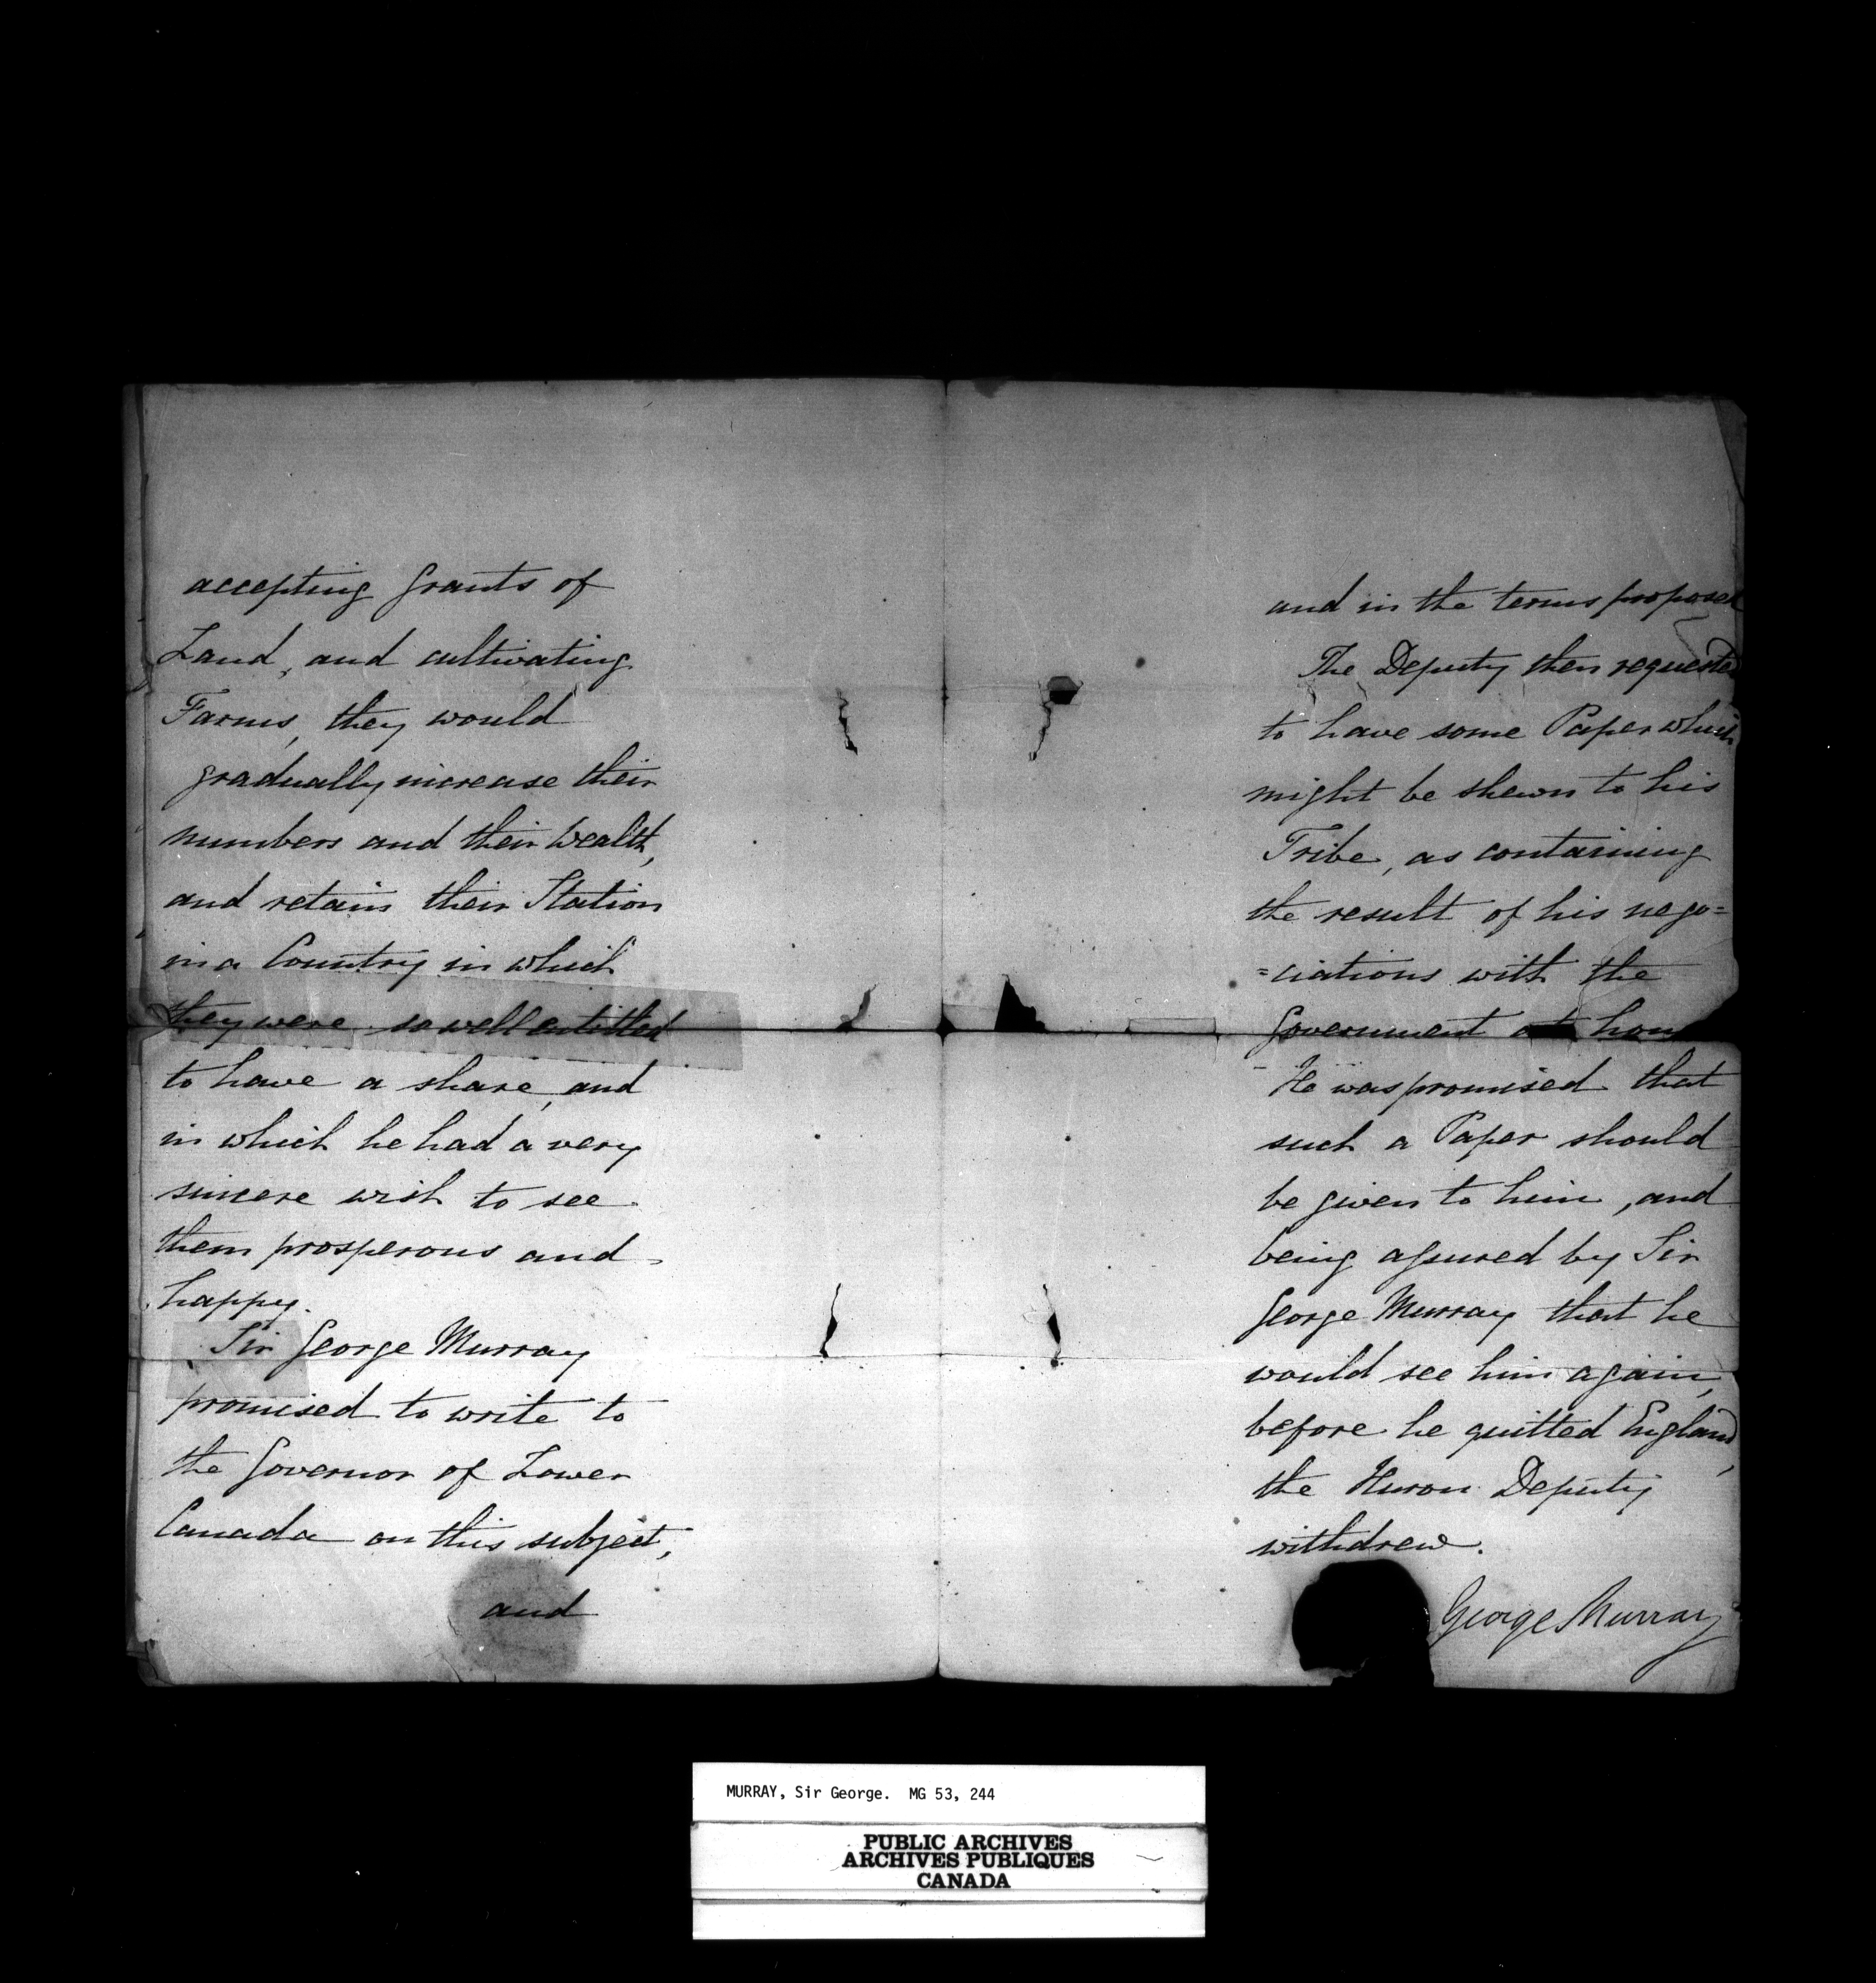 accepting Grants of
Land, and cultivating
Farms, they would
gradually increase their
numbers and their Wealth,
and retain their Station
in a Country in which
they were so well entitled
to have a share, and
in which he had a very
sincere wish to see
them prosperous and
happy.
Sir George Murray
promised to write to
the Governor of Lower
Canada on this subject,
and
and in the terms proposed
The Deputy then requested
to have some Paper which
might be shewn to his
Tribe, as containing
the result of his nego=
=ciations with the
Government at home
He was promised that
such a Paper should
be given to him, and
being assured by Sir
George Murray that he
would see him again,
before he quitted England,
the Huron Deputy
withdrew.
George Murray
MURRAY, Sir George. MG 53, 244
PUBLIC ARCHIVES
ARCHIVES PUBLIQUES
CANADA